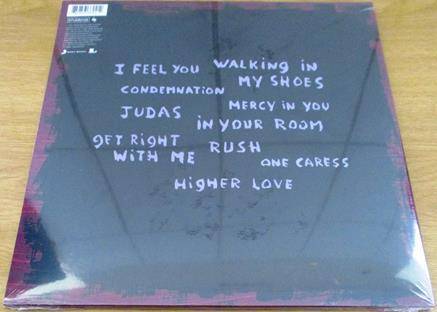 I FEEL YOU WALKING IN
MY SHOES
CONDEMNATION
MERCY IN YOU
JUDAS
IN YOUR ROOM
GET RIGHT
WITH ME
RUSH
ONE CARESS
HIGHER LOVE